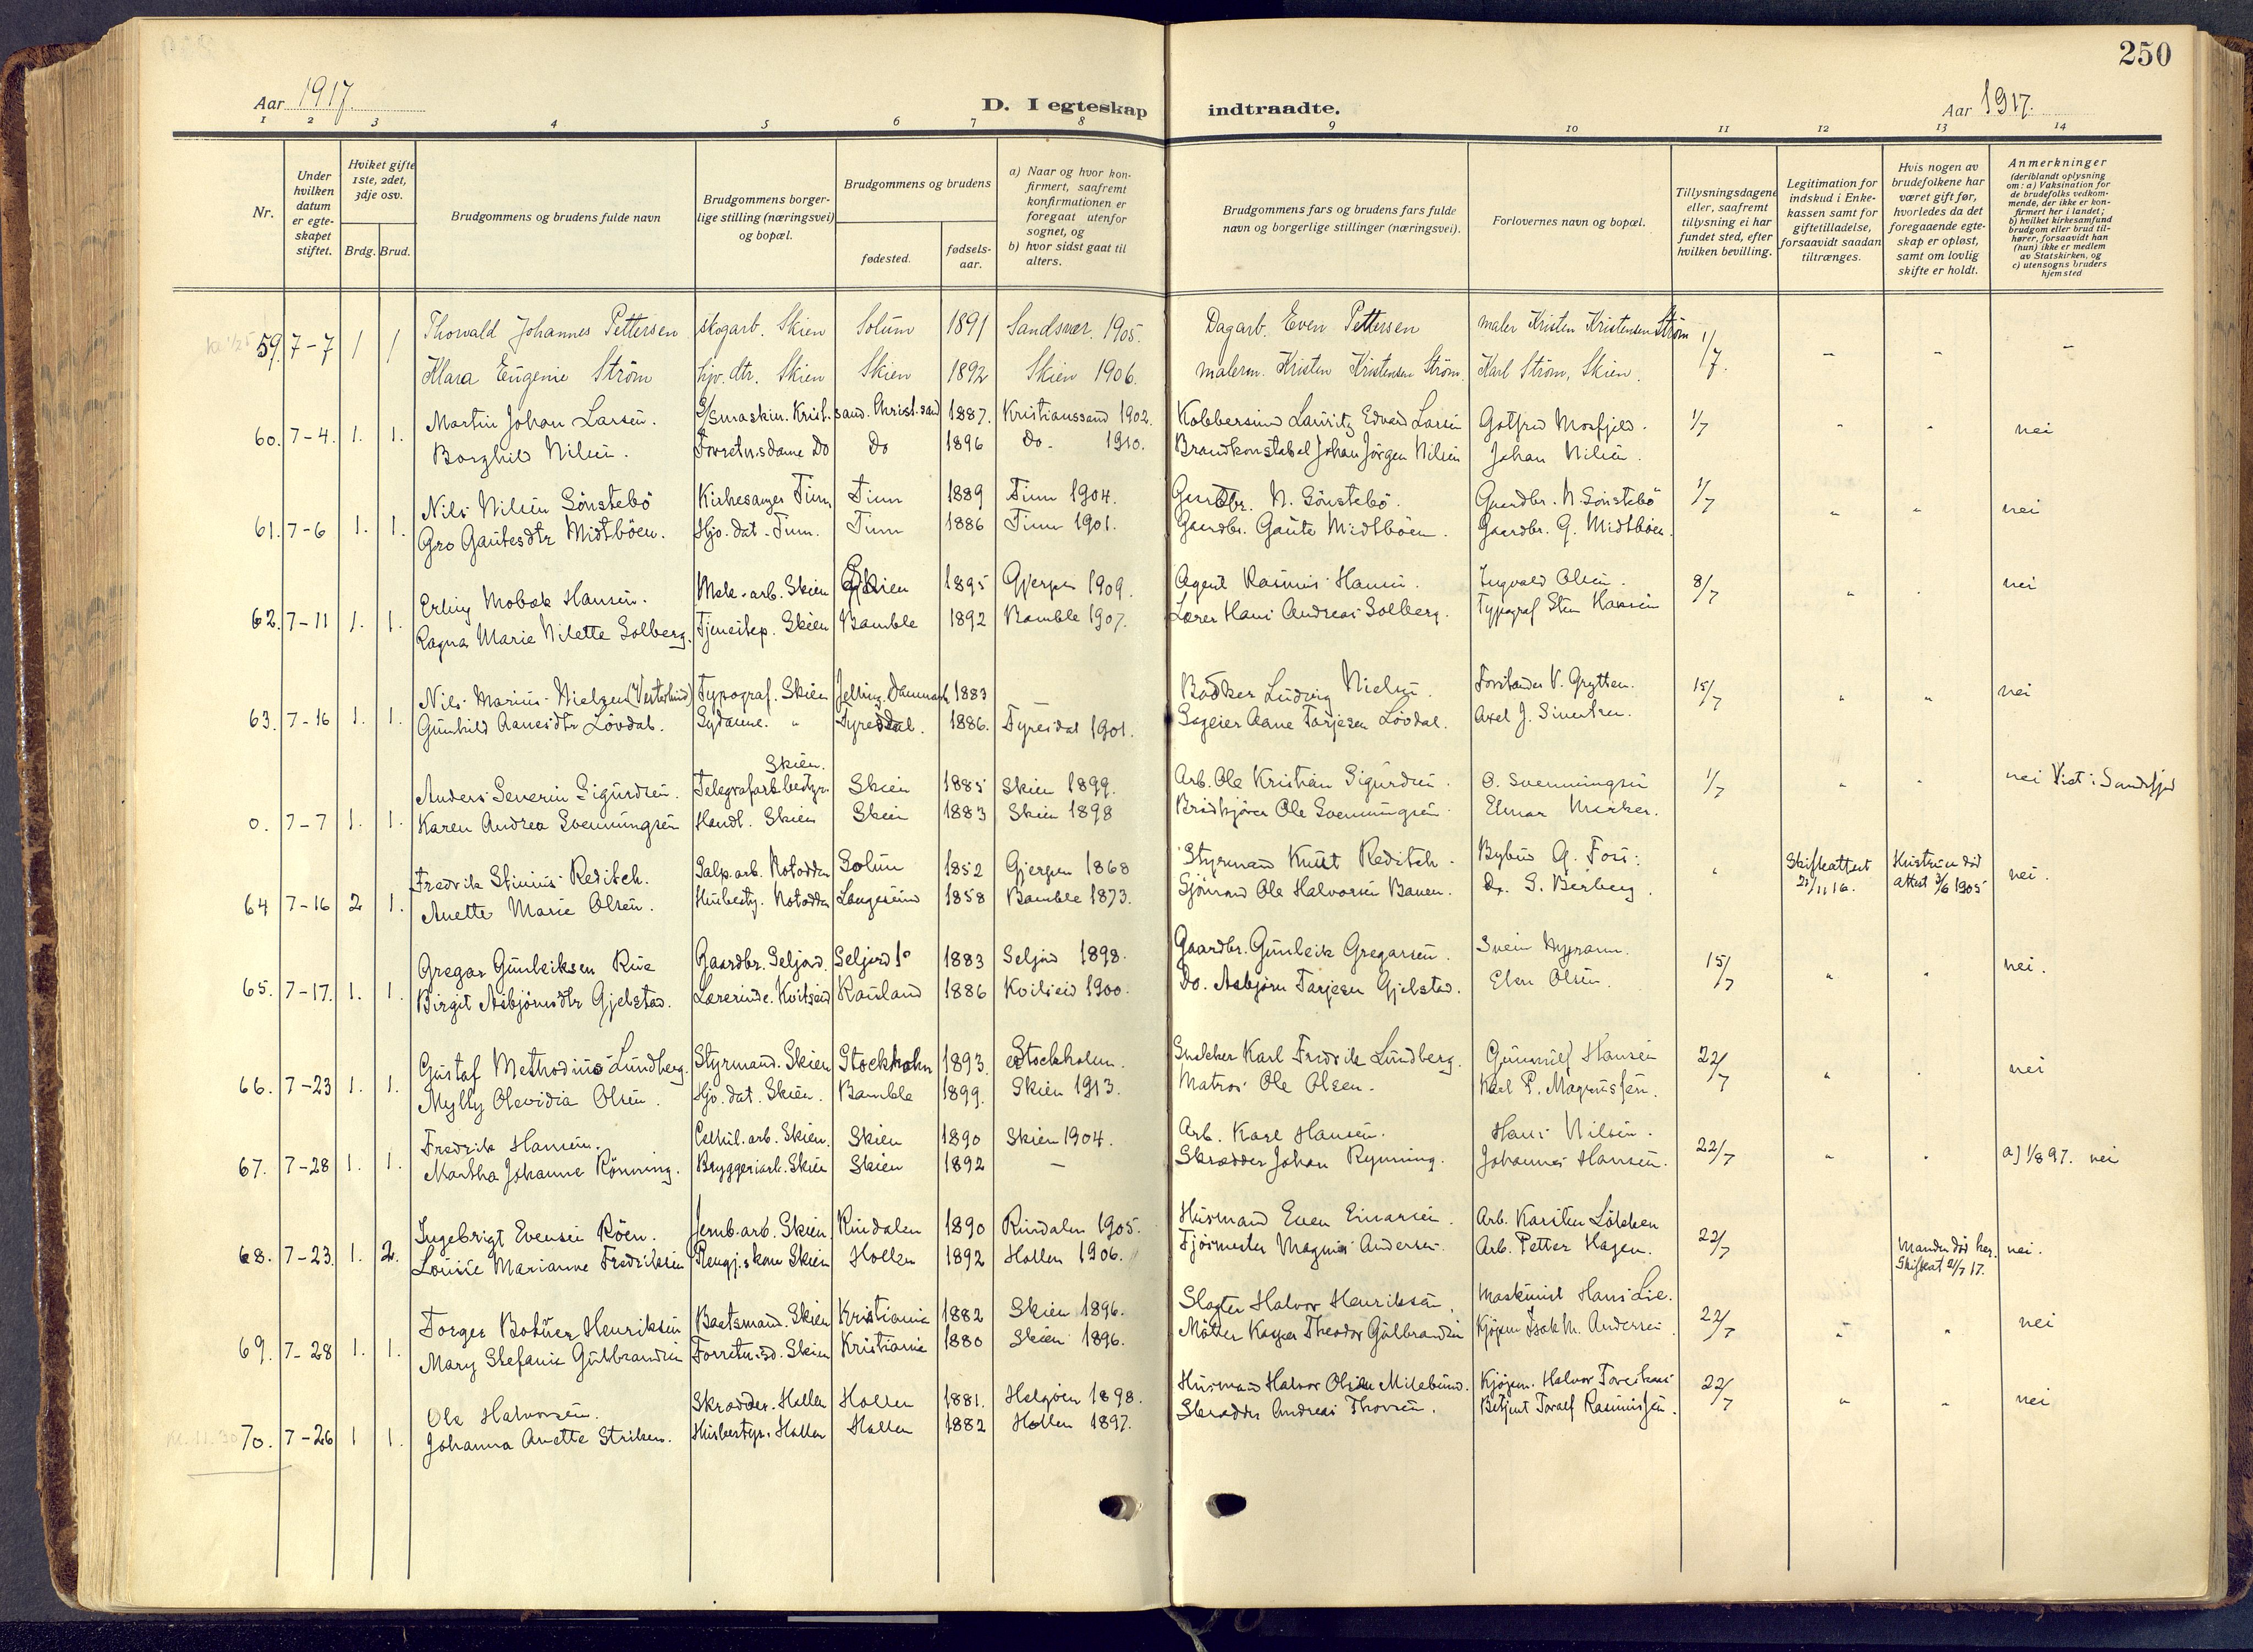 250
Aar 1917.
D. I egteskap indtraadte.
Aar 1917.
1 2 3 4 5 6 7 8 9 10 11 12 13 14
Nr.
Under hvilken datum er egte- skapet stiftet.
Hviket gifte 1ste, 2det, 3dje osv.
Brdg. Brud.
Brudgommens og brudens fulde navn
Brudgommens borger- lige stilling (næringsvei) og bopæl.
Brudgommens og brudens
fødested.
fødsels- aar.
a) Naar og hvor kon- firmert, saafremt konfirmationen er foregaat utenfor sognet, og
b) hvor sidst gaat til alters.
Brudgommens fars og brudens fars fulde navn og borgerlige stillinger (næringsvei).
Forlovernes navn og bopæl.
Tillysningsdagene eller, saafremt tillysning ei har fundet sted, efter hvilken bevilling.
Legitimation for indskud i Enke- kassen samt for giftetilladelse, forsaavidt saadan tiltrænges.
Hvis nogen av brudefolkene har været gift før, hvorledes da det foregaaende egte- skap er opløst, samt om lovlig skifte er holdt.
Anmerkninger (deriblandt oplysning om: a) Vaksination for de brudefolks vedkom- mende, der ikke er kon- firmert her i landet; b) hvilket kirkesamfund brudgom eller brud til- hører, forsaavidt han (hun) ikke er medlem av Statskirken, og c) utensogns bruders hjemsted
Thorvald Johannes Pettersen skogarb. Skien Solum 1891 Sandsvær. 1905. Dagarb. Even Pettersen maler Kristen Kristensen Strøm
59. 7-7 1 1 1/7. - - -
Klara Eugenie Strøm hjv. dtr. Skien Skien 1892 Skien 1906. malerm. Kristen Kristensen Strøm. Karl Strøm, Skien.
Martin Johan Larsen. Krist.sand. Christ.sand 1887. Kristianssand 1902. Lauritz Edvard Larsen Gotfred Mosfjeld.
60. 7-4. 1. 1. 1/7 " " nei
Borghild Nilsen. Forretn.sdame Do Do 1896 Do. 1910. Brandkonstabel Johan Jørgen Nilsen Johan Nilsen.
Nils Nilsen Sönstebö Kirkesanger Tinn Tinn 1889 Tinn 1904. Gaardbr. N. Sönstebö. Gaardbr. N. Sönstebö
61. 7-6 1. 1. 1/7 " " nei
Gro Gautesdtr Midtböen. Hjv. dat. Tinn. Tinn 1886 Tinn 1901. Gaardbr. Gaute Midtböen. Gaardbr. G. Midtböen.
Erling Mobæk Hansen. Mek. arb. Skien Skien 1895 Gjerpen 1909. Agent Rasmus Hansen. Ingvald Olsen.
62. 7-11 1. 1. 8/7 " . nei
Ragna Marie Nilette Solberg. Tjenestep. Skien Bamble 1892 Bamble 1907. Lærer Hans Andreas Solberg. Typograf Sten Hansen
Nils Marius Nielsen (Vesterlund) Typograf. Skien Jelling. Danmark 1883 Bødker Ludvig Nielsen. Forstander V. Grytten.
63. 7-16 1. 1. 15/7 " " nei
Gunhild Aanesdtr Lövdal. Sydame. " Tyresdal. 1886. Tyresdal 1901. Sageier Aane Tarjesen Lövdal. Axel J. Sivertsen.
Skien.
Anders Severin Sigurdsen. Telegrafarb.bestyr. Skien 1885 Skien 1899. Arb. Ole Kristian Sigurdsen. O. Svenningsen
0. 7-7 1. 1. 1/7 " . nei Viet i Sandefjord
Karen Andrea Svenningsen Handl. Skien Skien 1883 Skien 1898 Ole Svenningsen Elmar Merker.
Fredrik Stinius Reditsch. Salp.arb. Notodden Solum 1852 Gjerpen 1868 Styrmand Knut Reditsh. Bybud G. Foss.
64 7-16 2 1. " Skifteattest 21/11 16. Hustruen död attest 3/6 1905 nei.
Anette Marie Olsen. Husbesty. Notodden Langesund 1858 Bamble 1873. Sjömand Ole Halvorsen Bauen. Dr. S. Berberg.
Gregar Gunleiksen Rue Gaardbr. Seljord. Seljord 1883 Seljord 1898. Gaardbr. Gunleik Gregarsen. Svein
65. 7-17. 1. 1. 15/7 " " nei.
Birgit Asbjörnsdtr Gjelstad. Lærerinde. Kvitseid Rauland 1886 Kvitseid 1900. Do. Asbjørn Tarjesen Gjelstad. Olsen.
Gustaf Methodius Lundberg. Styrmand. Skien Stockholm 1893. Stockholm. Snekker Karl Fredrik Lundberg. Gunnulf Hansen
66. 7-23 1. 1. 22/7 " . nei
Mylly Olevidia Olsen. Hjv. dat. Skien. Bamble 1899. Skien 1913. Matros Ole Olsen. Karl P. Magnussen.
Fredrik Hansen. Cellul. arb. Skien. Skien 1890 Skien 1904. Arb. Karl Hansen. Hans Nilsen.
67. 7-28 1. 1. 22/7 " . a) 1/8 97. nei
Martha Johanne Rönning. Bryggeriarb. Skien Skien 1892 - Skrædder Johan Rynning. Johannes Hansen.
Ingebrigt Evensen Röen. Jernb.arb. Skien Rindalen 1890 Rindalen 1905. Husmand Even Einarsen. Arb. Karsten Lökken
68. 7-23. 1. 2. 22/7 Manden död her. Skifteat 21/7 17. nei.
Lovise Marianne Fredriksen Rengj.skone Skien Hollen 1892 Hollen 1906. Magnus Andersen. Arb. Petter Hagen.
Torger Henriksen Baatsmand. Skien Kristiania 1882 Skien 1896. Slagter Halvor Henriksen. Maskinist Hans Lie.
69. 7-28 1. 1. 22/7 " " nei
Mary Stefanie Gulbrandsen Forretn.sd. Skien Kristiania 1880 Skien 1896. Theodor Gulbrandsen Kjøpm Isak M. Andersen
Ole Halvorsen. Skrædder. Hollen Hollen 1881. Helgöen 1898. Husmand Halvor Olsen Kjøpm. Halvor
70. 7-26 1 1. 22/7 " " nei
Johanna Anette Husbestyr. Hollen Hollen 1882 Hollen 1897. Skrædder Andreas Thorsen. Betjent Toralf Rasmussen.